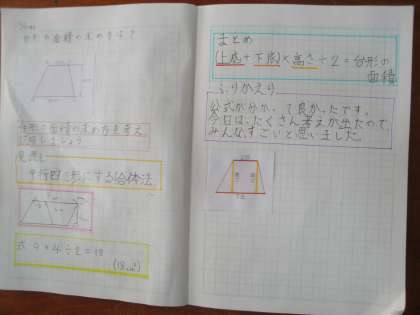 台形の面積の求め方は?
台形の面積の求め方を考え
説明しましょう
見通し
平行四辺形にする合体法
式 9×4÷2=18
(18cm²)
まとめ
(上底+下底)×高さ÷2=台形の
面積
ふりかえり
公式が分かって良かったです。
今日は、たくさん考えが出たので
みんなすごいと思いました。